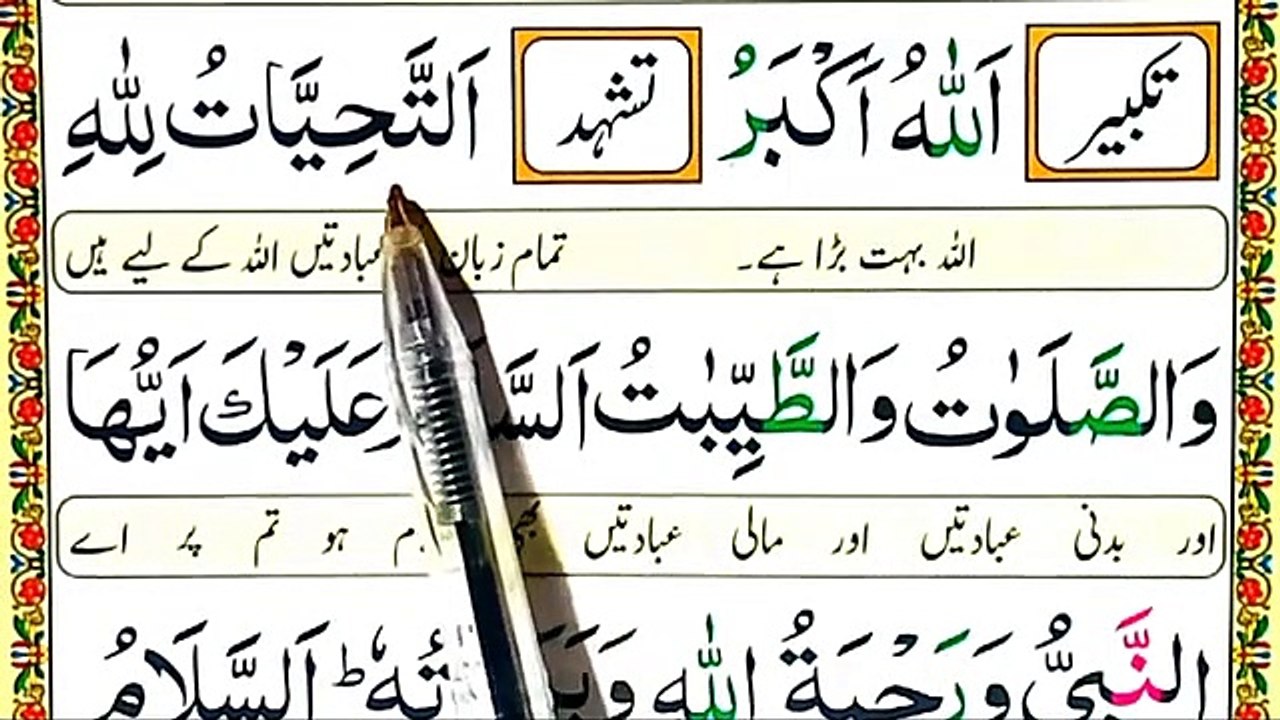 تکبیر اَللّٰهُ اَکْبَرُ تشہد اَلتَّحِیَّاتُ لِلّٰهِ
اللہ بہت بڑا ہے۔ تمام زبان عبادتیں اللہ کے لیے ہیں
وَالصَّلَوٰتُ وَالطَّیِّبٰتُ عَلَیْكَ اَیُّهَا
اور بدنی عبادتیں اور مالی عبادتیں ہو تم پر اے
النَّبِیُّ وَرَحْمَةُ اللّٰهِ اَلسَّلَامُ